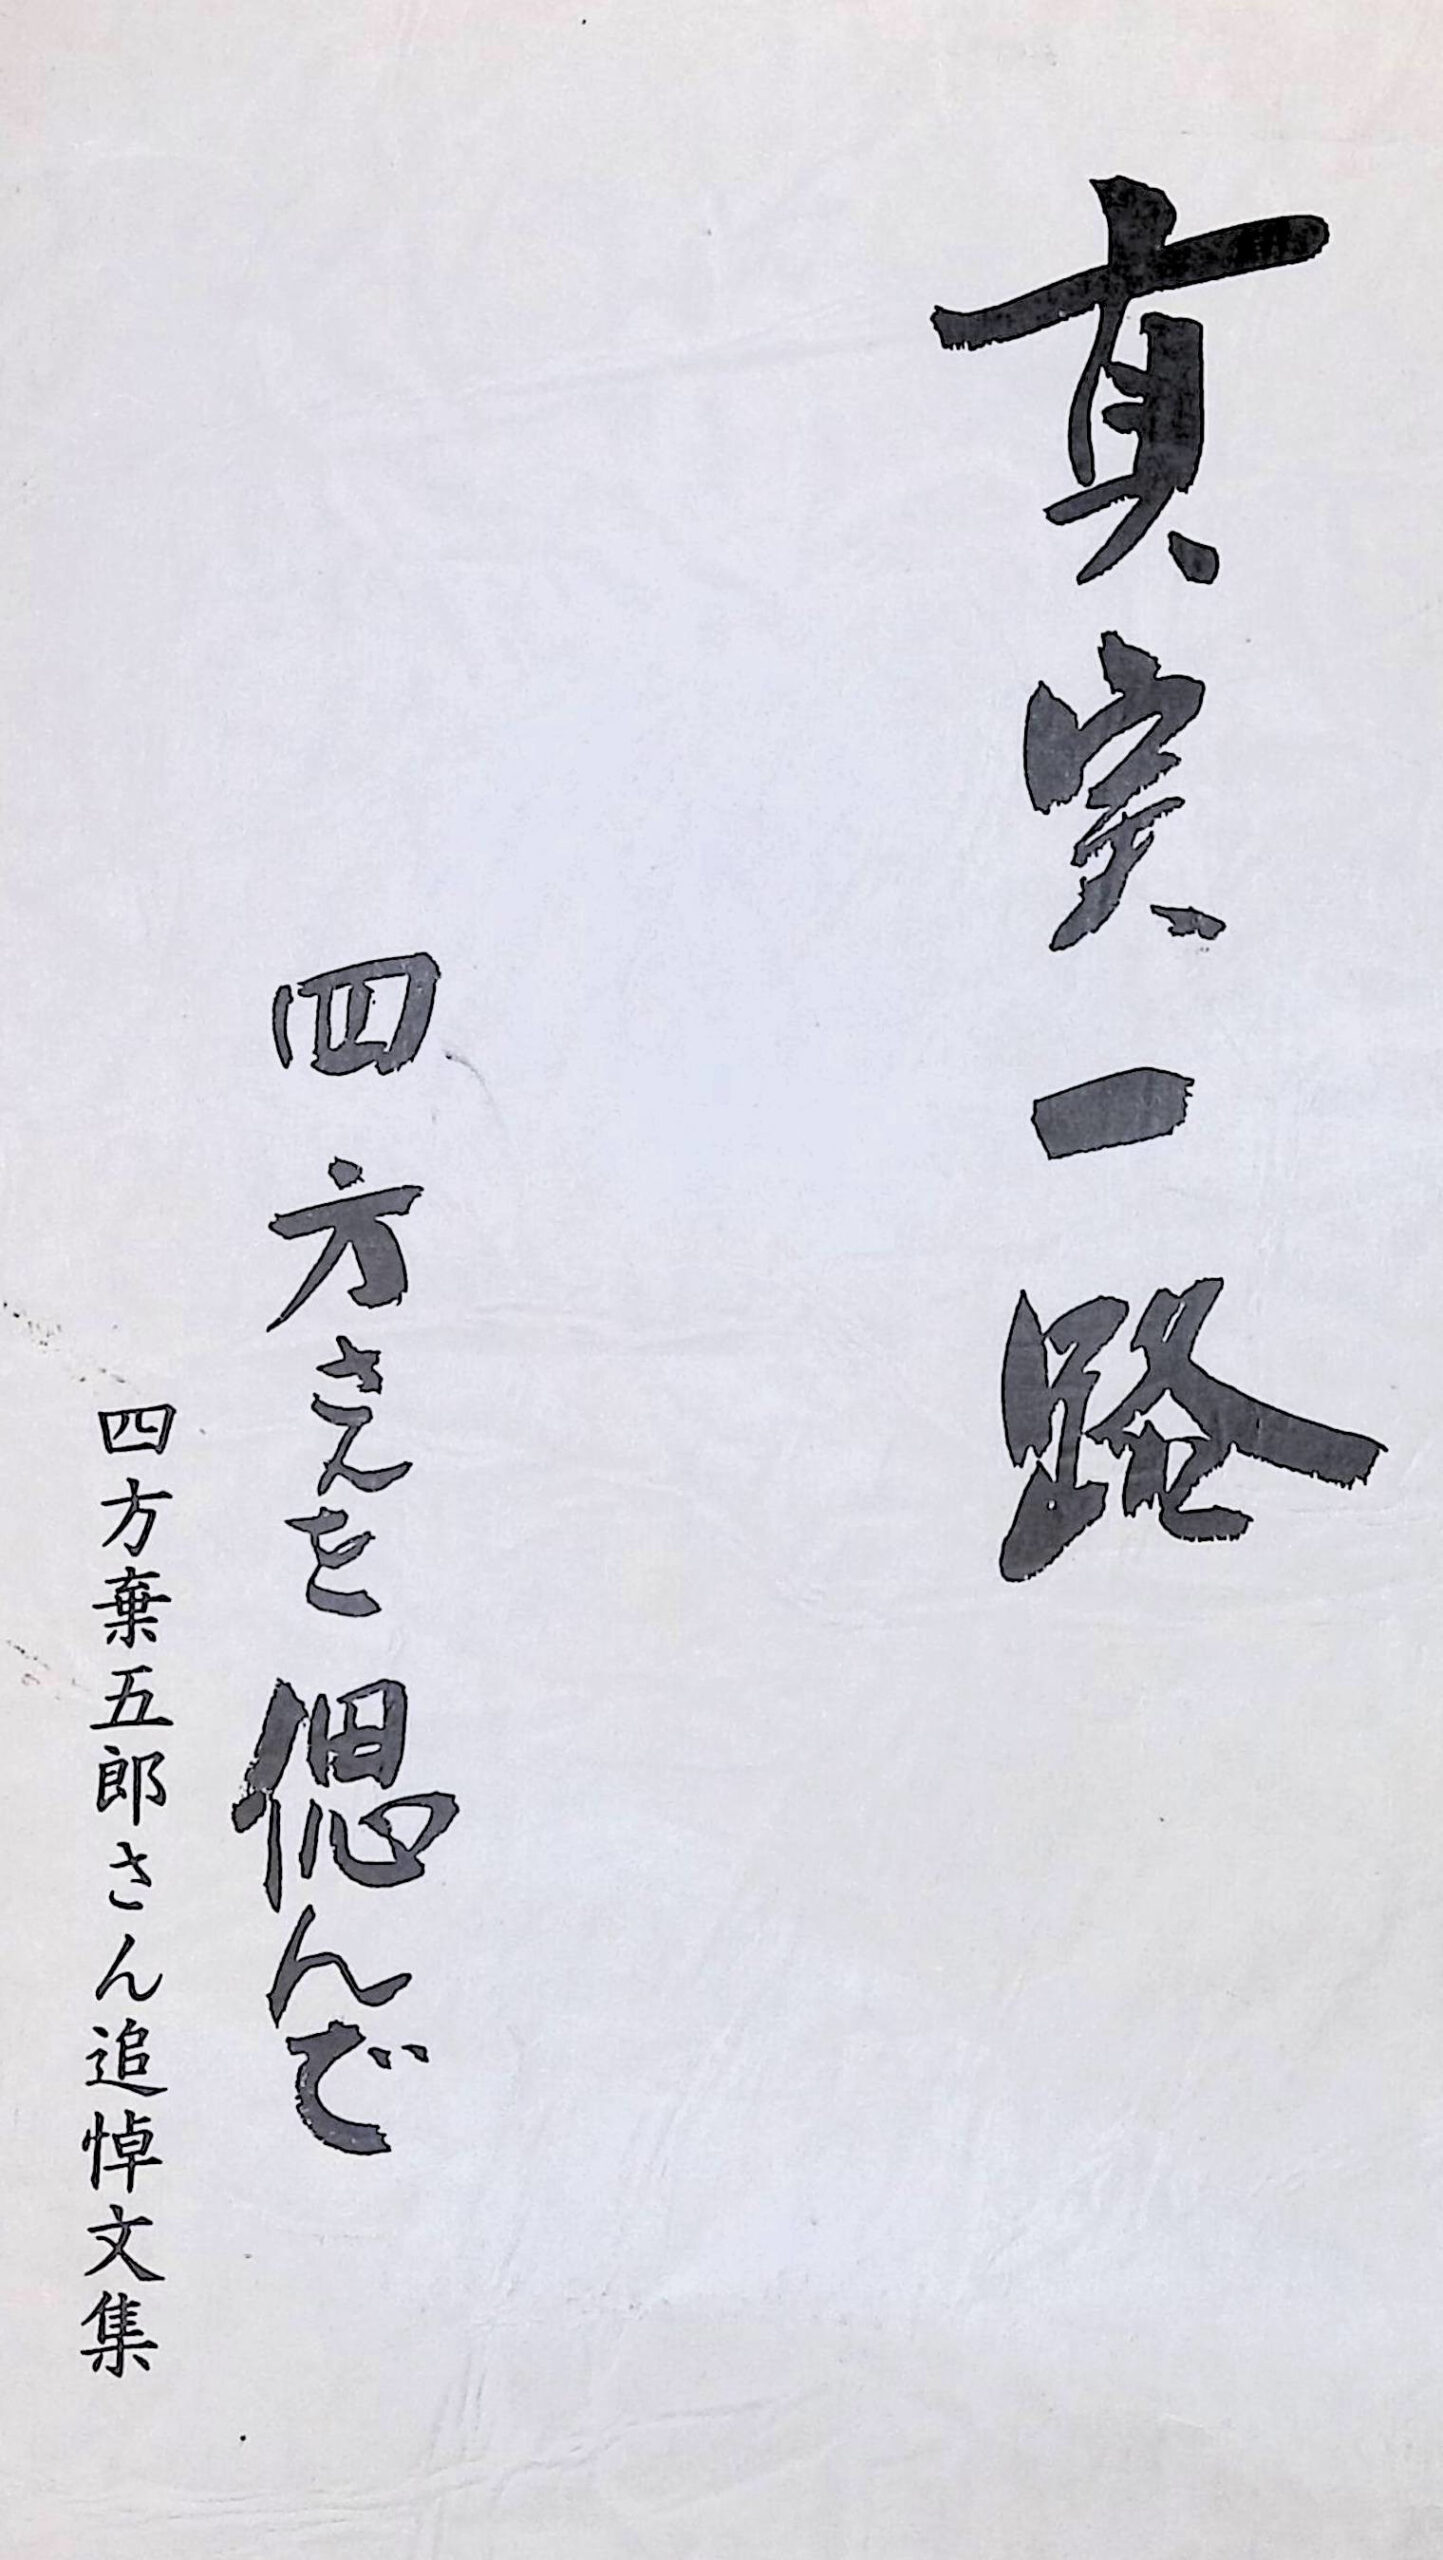 真実一路
四方さんを偲んで
四方棄五郎さん追悼文集